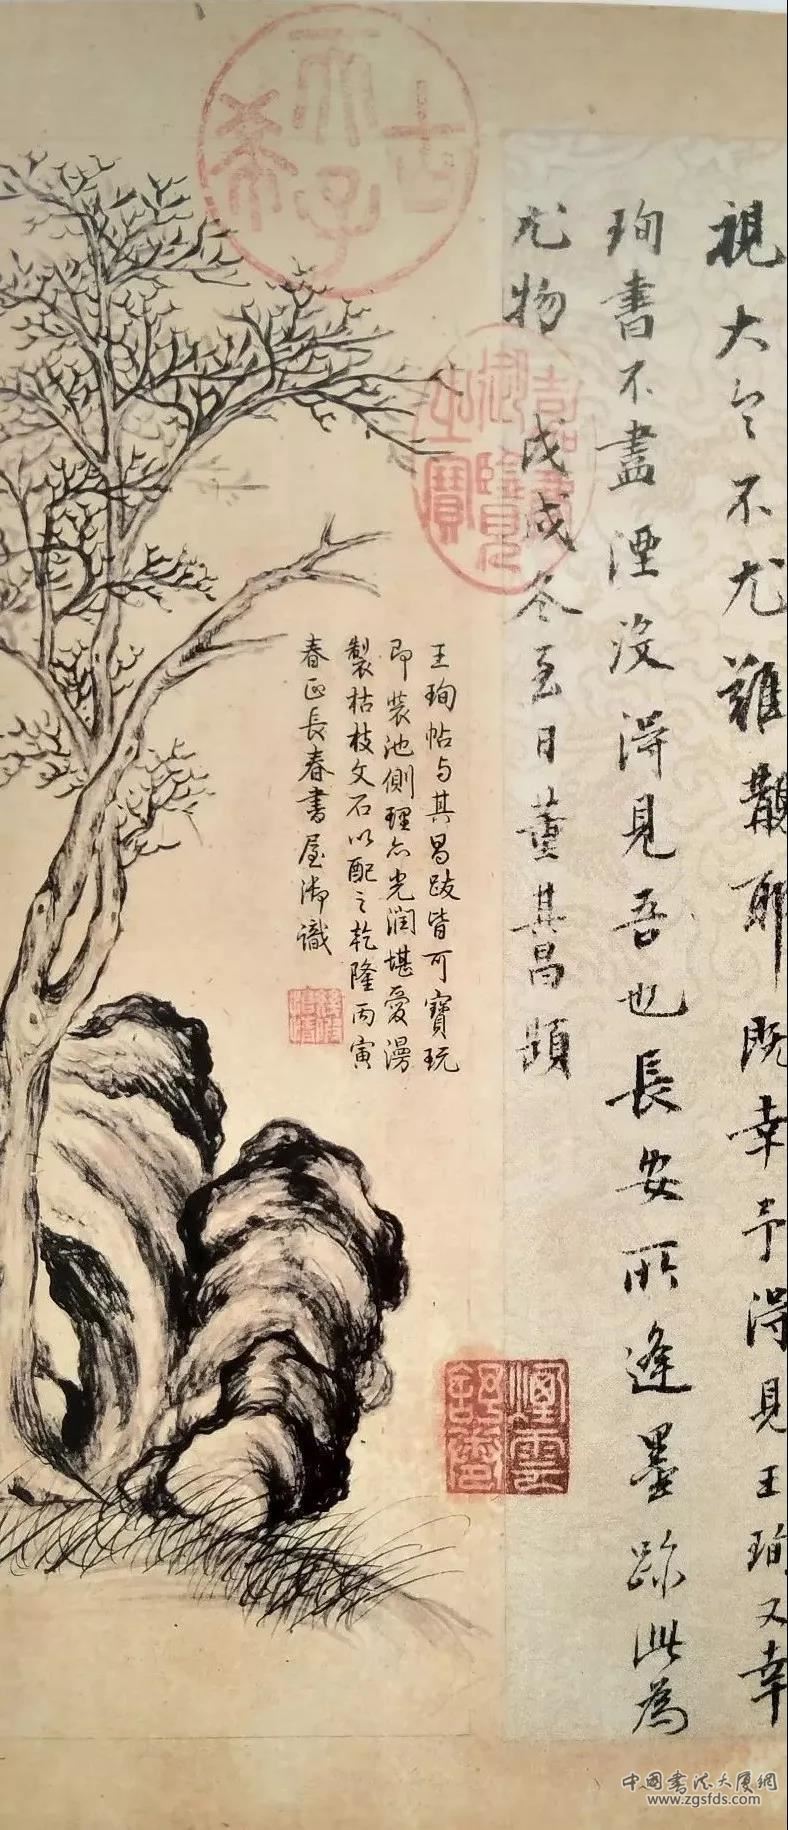 視大令不尤難覯耶既幸予得見王珣又幸
珣書不盡湮沒得見吾也長安所逢墨跡此為
尤物 戊戌冬至日董其昌題
嘉慶御覽之寶
古希天子
王珣帖与其昌跋皆可寶玩
即裝池側理亦光潤堪愛漫
製枯枝文石以配之乾隆丙寅
春正長春書屋御識
中國書法大廈網
www.zgsfds.com